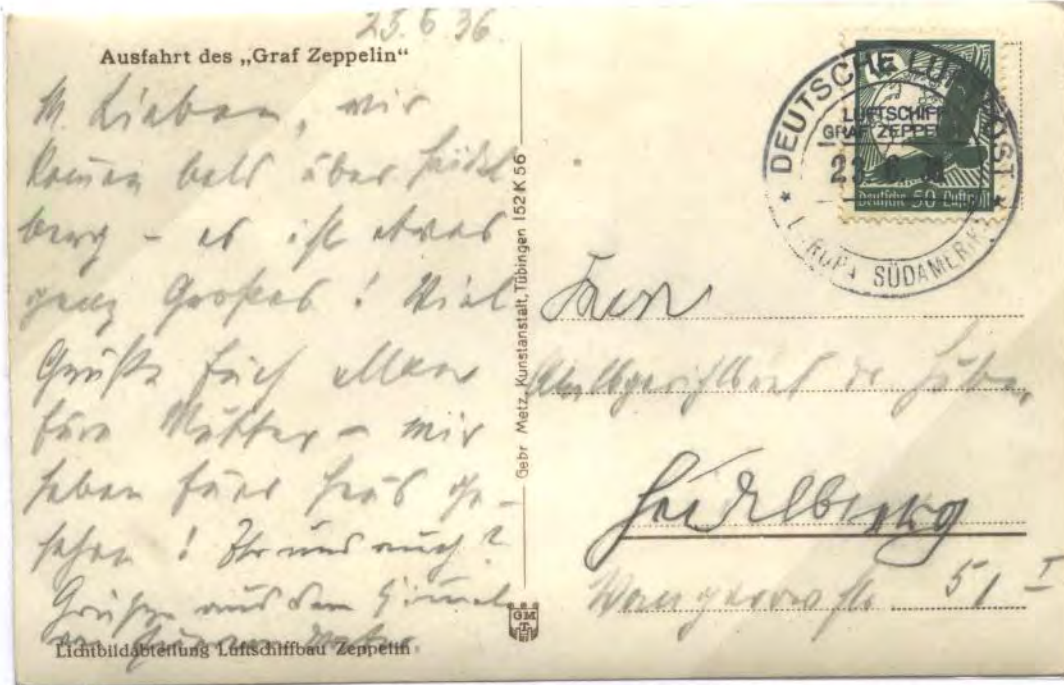 23.6.36.
Ausfahrt des „Graf Zeppelin“
M. Lieben, wir
kamen bald über Heidel
berg – es ist etwas
ganz Großes! Viel
Grüße Euch allen
Eure Mutter – wir
haben Euer Haus ge-
sehen! Ihr uns auch?
Grüße aus dem Himmel
Lichtbildabteilung Luftschiffbau Zeppelin
Gebr Metz, Kunstanstalt, Tübingen 152 K 56
GMT
DEUTSCHE LUFTPOST
LUFTSCHIFF
GRAF ZEPPELIN
23.6.36
EUROPA SÜDAMERIKA
Deutsche 50 Luftpost
Herrn
Amtsgerichtsrat Dr.
Heidelberg
51 I